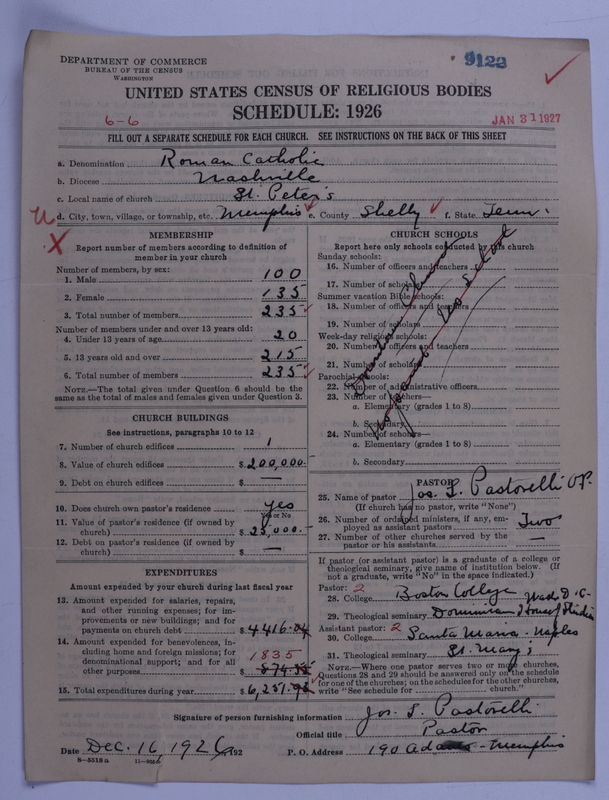 DEPARTMENT OF COMMERCE
BUREAU OF THE CENSUS
WASHINGTON
9122
UNITED STATES CENSUS OF RELIGIOUS BODIES
SCHEDULE: 1926
6-6
JAN 31 1927
FILL OUT A SEPARATE SCHEDULE FOR EACH CHURCH. SEE INSTRUCTIONS ON THE BACK OF THIS SHEET
a. Denomination Roman Catholic
b. Diocese Nashville
c. Local name of church St. Peter's
d. City, town, village, or township, etc. Memphis e. County Shelby f. State Tenn.
MEMBERSHIP
Report number of members according to definition of
member in your church
Number of members, by sex:
1. Male 100
2. Female 135
3. Total number of members 235
Number of members under and over 13 years old:
4. Under 13 years of age 20
5. 13 years old and over 215
6. Total number of members 235
NOTE.—The total given under Question 6 should be the
same as the total of males and females given under Question 3.
CHURCH BUILDINGS
See instructions, paragraphs 10 to 12
7. Number of church edifices 1
8. Value of church edifices $ 200,000.
9. Debt on church edifices $ —
10. Does church own pastor's residence yes
Yes or No
11. Value of pastor's residence (if owned by
church) $ 25,000.
12. Debt on pastor's residence (if owned by
church) $ —
EXPENDITURES
Amount expended by your church during last fiscal year
13. Amount expended for salaries, repairs,
and other running expenses; for im-
provements or new buildings; and for
payments on church debt $ 4416.
14. Amount expended for benevolences, in-
cluding home and foreign missions; for
denominational support; and for all
other purposes 1835
15. Total expenditures during year $ 6,251.
CHURCH SCHOOLS
Report here only schools conducted by this church
Sunday schools:
16. Number of officers and teachers
17. Number of scholars
Summer vacation Bible schools:
18. Number of officers and teachers
19. Number of scholars
Week-day religious schools:
20. Number of officers and teachers
21. Number of scholars
Parochial schools:
22. Number of administrative officers
23. Number of teachers—
a. Elementary (grades 1 to 8)
b. Secondary
24. Number of scholars—
a. Elementary (grades 1 to 8)
b. Secondary
Church
No School
PASTOR
25. Name of pastor Jos. S. Pastorelli O.P.
(If church has no pastor, write "None")
26. Number of ordained ministers, if any, em-
ployed as assistant pastors Two
27. Number of other churches served by the
pastor or his assistants —
If pastor (or assistant pastor) is a graduate of a college or
theological seminary, give name of institution below. (If
not a graduate, write "No" in the space indicated.)
Pastor: 2
28. College Boston College
Wash. D.C.
29. Theological seminary Dominican House of Studies
Assistant pastor: 2
30. College Santa Maria - Naples
31. Theological seminary St. Mary's
NOTE.—Where one pastor serves two or more churches,
Questions 28 and 29 should be answered only on the schedule
for one of the churches; on the schedules for the other churches,
write "See schedule for church."
Signature of person furnishing information Jos. S. Pastorelli
Official title Pastor
Date Dec. 16, 1926, 192 P. O. Address 190 Adams - Memphis
8—5518 a